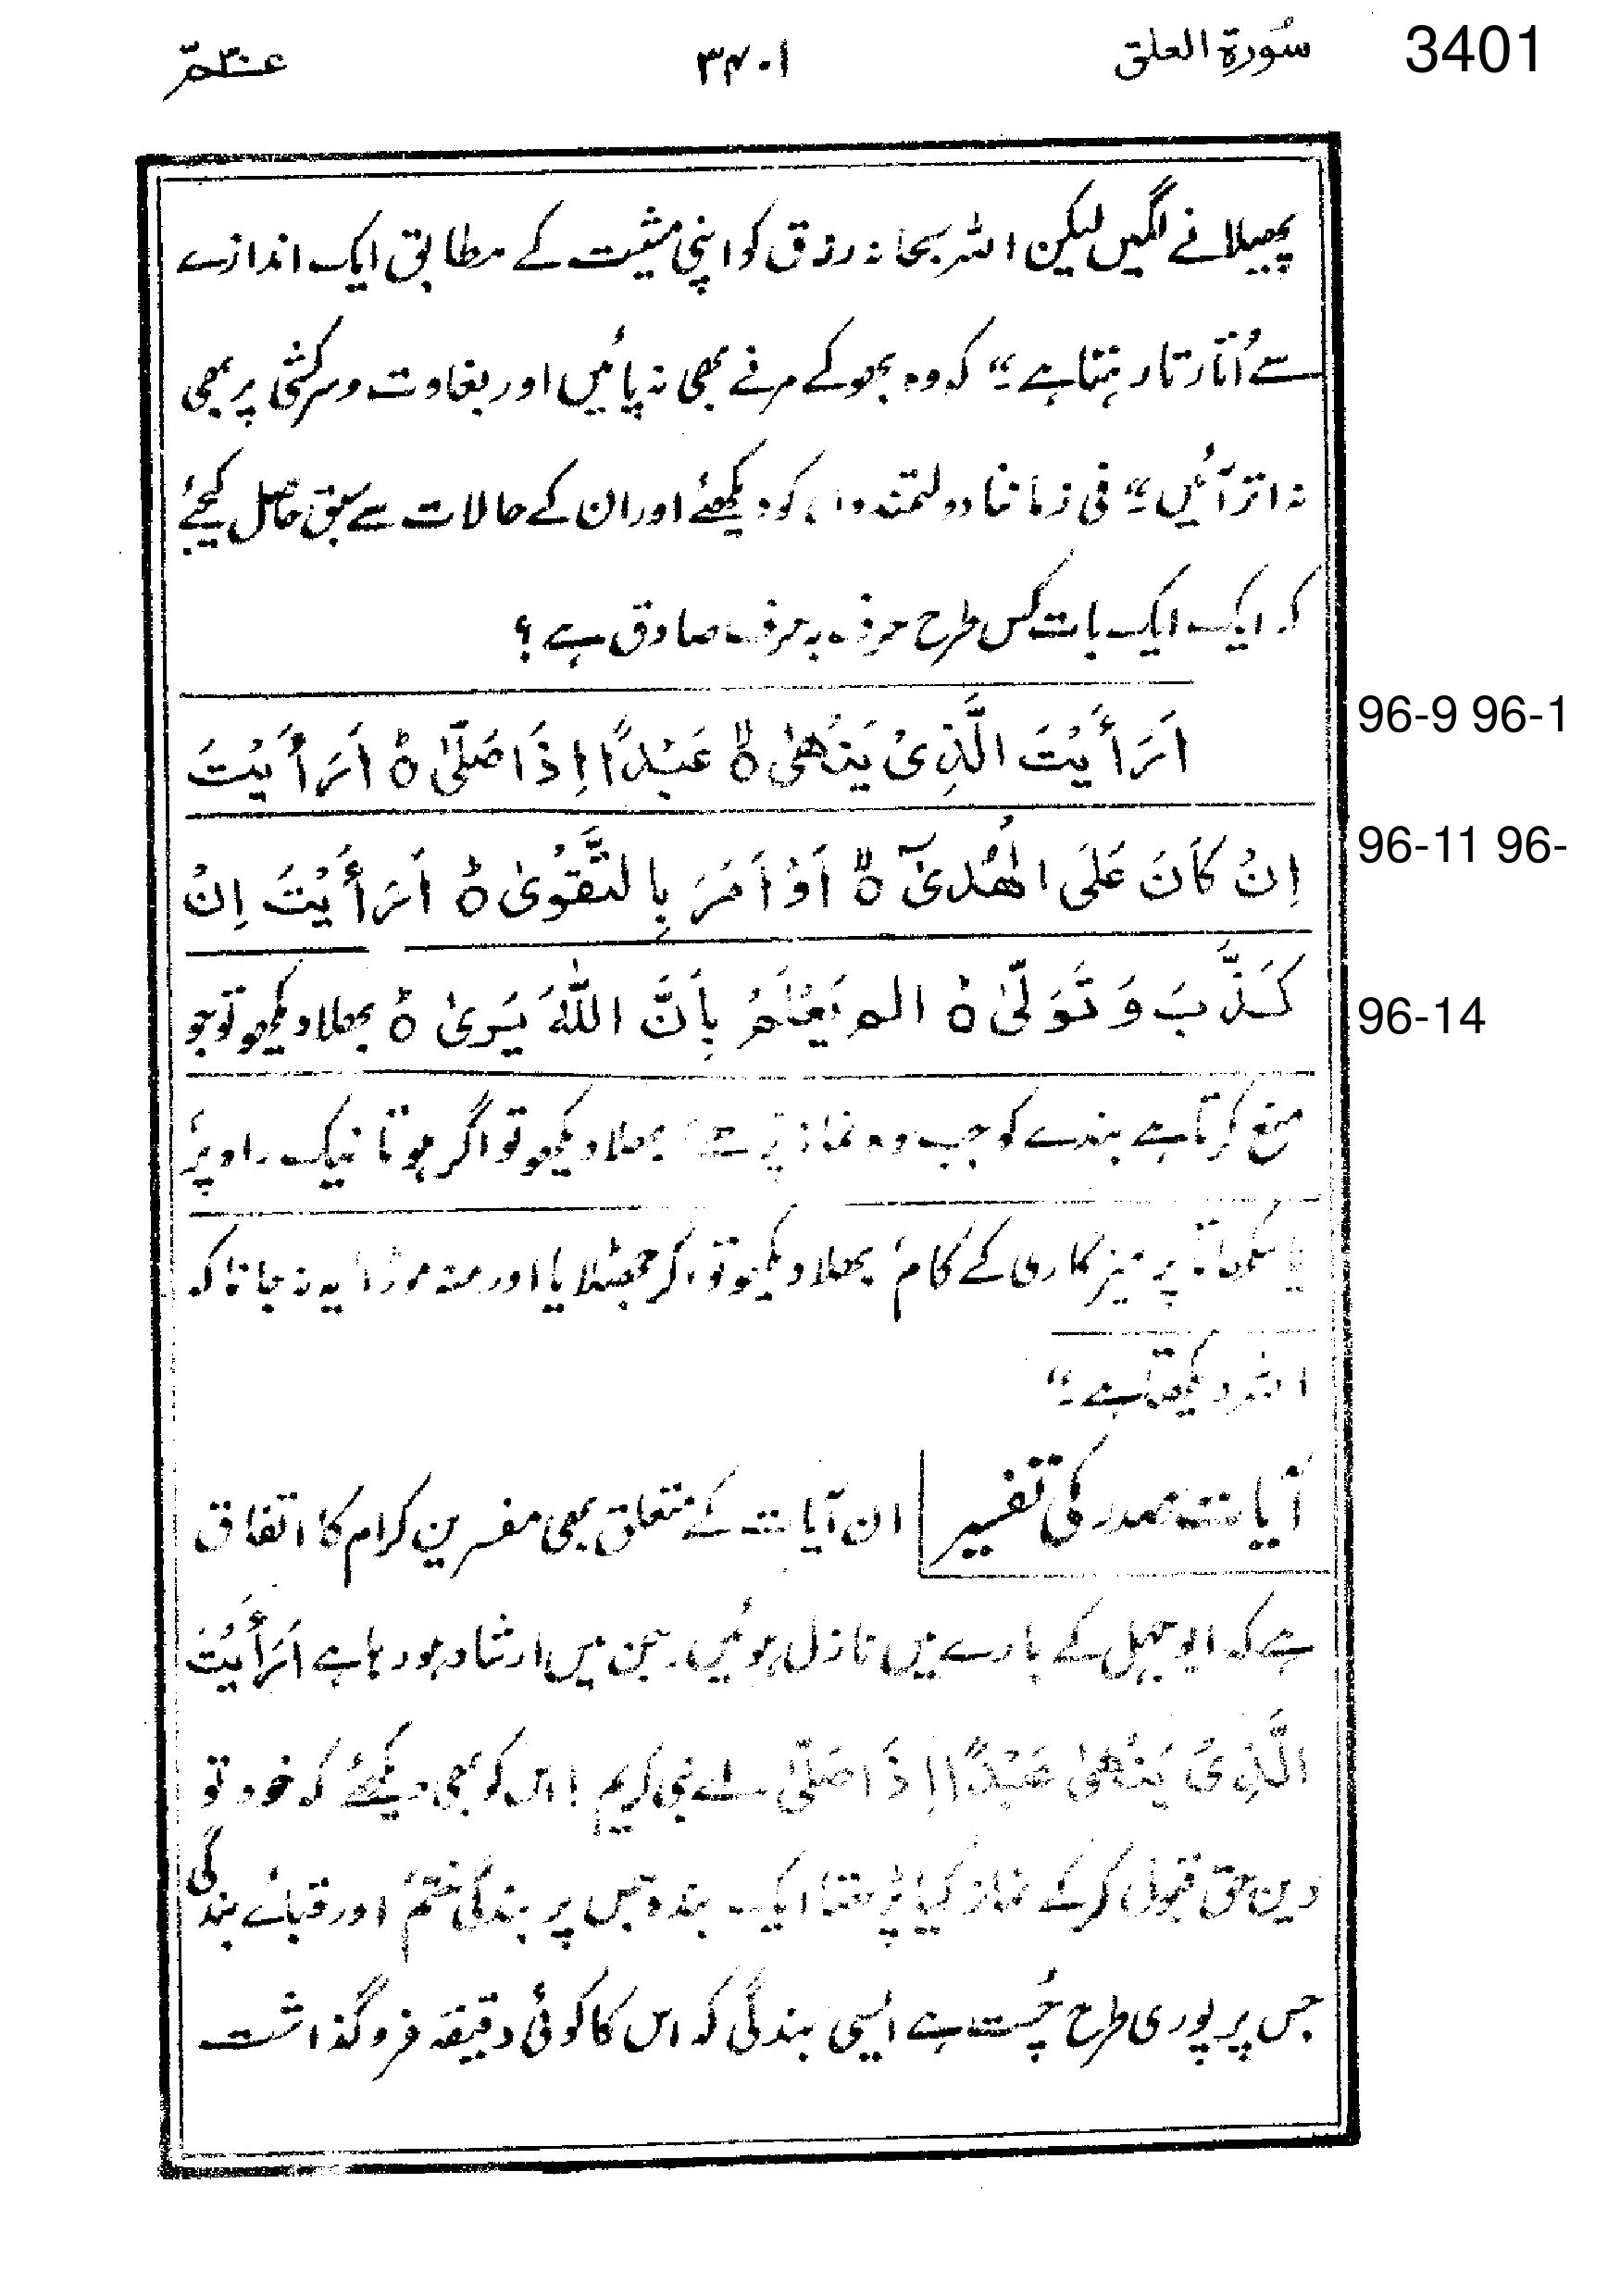 سُورة العلق ۳۴۰۱ عـــــمّ ۳۰ 3401
پھیلانے لگیں لیکن اللہ سبحانہ رزق کو اپنی مشیت کے مطابق ایک اندازے
سے اُتارتا رہتا ہے۔“ کہ وہ بھوکے مرنے بھی نہ پائیں اور بغاوت و سرکشی پر بھی
نہ اتر آئیں۔“ فی زماننا دولتمندوں کو دیکھئے اور ان کے حالات سے سبق حاصل کیجئے
کہ ایک ایک بات کس طرح حرف بہ حرف صادق ہے ؟
اَرَأَیْتَ الَّذِیْ یَنْھٰی ۙ عَبْدًا اِذَا صَلّٰی ؕ اَرَأَیْتَ 96-9 96-1
اِنْ کَانَ عَلَی الْھُدٰیٓ ۙ اَوْ اَمَرَ بِالتَّقْوٰی ؕ اَرَأَیْتَ اِنْ 96-11 96-
کَذَّبَ وَ تَوَلّٰی ؕ الم یَعْلَمْ بِاَنَّ اللّٰہَ یَرٰی ؕ بھلا دیکھو تو جو 96-14
منع کرتا ہے بندے کو جب وہ نماز پڑھے، بھلا دیکھو تو اگر ہوتا نیک راہ پر،
یا سکھاتا پرہیزگاری کے کام، بھلا دیکھو تو اگر جھٹلایا اور منہ موڑا یہ نہ جانا کہ
اللہ دیکھتا ہے۔“
آیات صدر کی تفسیر ان آیات کے متعلق بھی مفسرین کرام کا اتفاق
ہے کہ ابوجہل کے بارے میں نازل ہوئیں۔ جن میں ارشاد ہو رہا ہے اَرَأَیْتَ
الَّذِیْ یَنْھٰی عَبْدًا اِذَا صَلّٰی اے نبی کریم ! اس کو بھی دیکھئے کہ خود تو
دین حق قبول کرکے نماز کیا پڑھتا ایک بندہ جس پر بندگی ختم، اور قبائے بندگی
جس پر پوری طرح چُست ہے ایسی بندگی کہ اس کا کوئی دقیقہ فروگذاشت